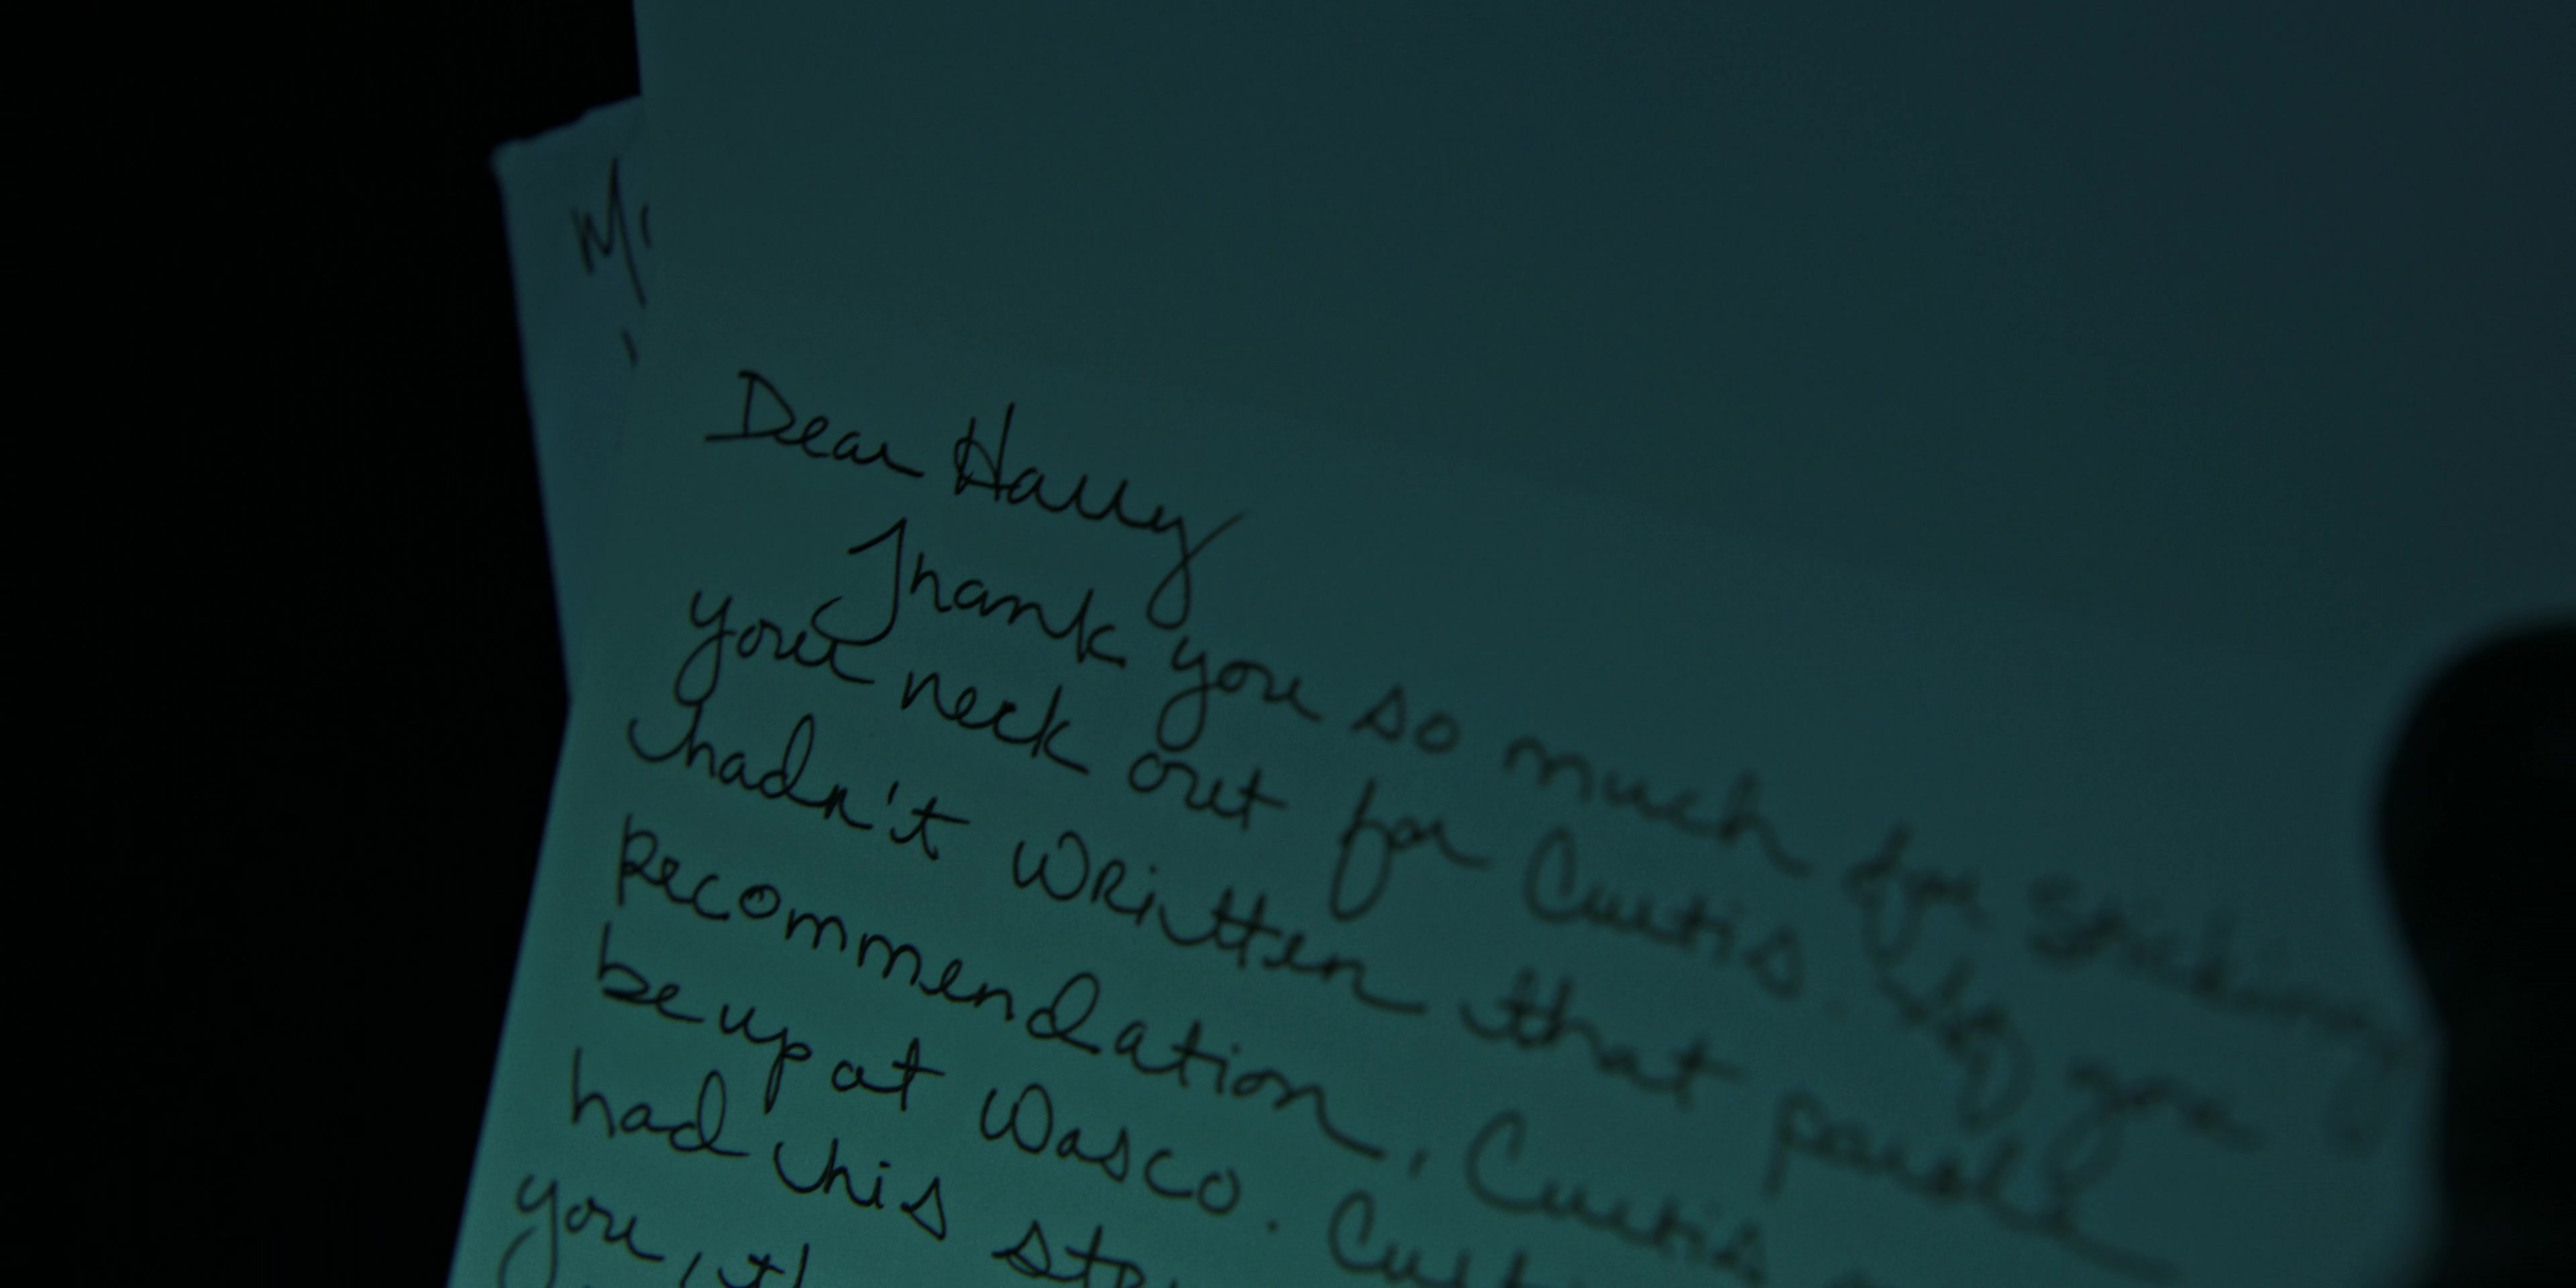 M
Dear Harry
Thank you so much for sticking
your neck out for Curtis. If you
hadn't written that parole
recommendation, Curtis
be up at Wasco. Curt
had his sto
you, th